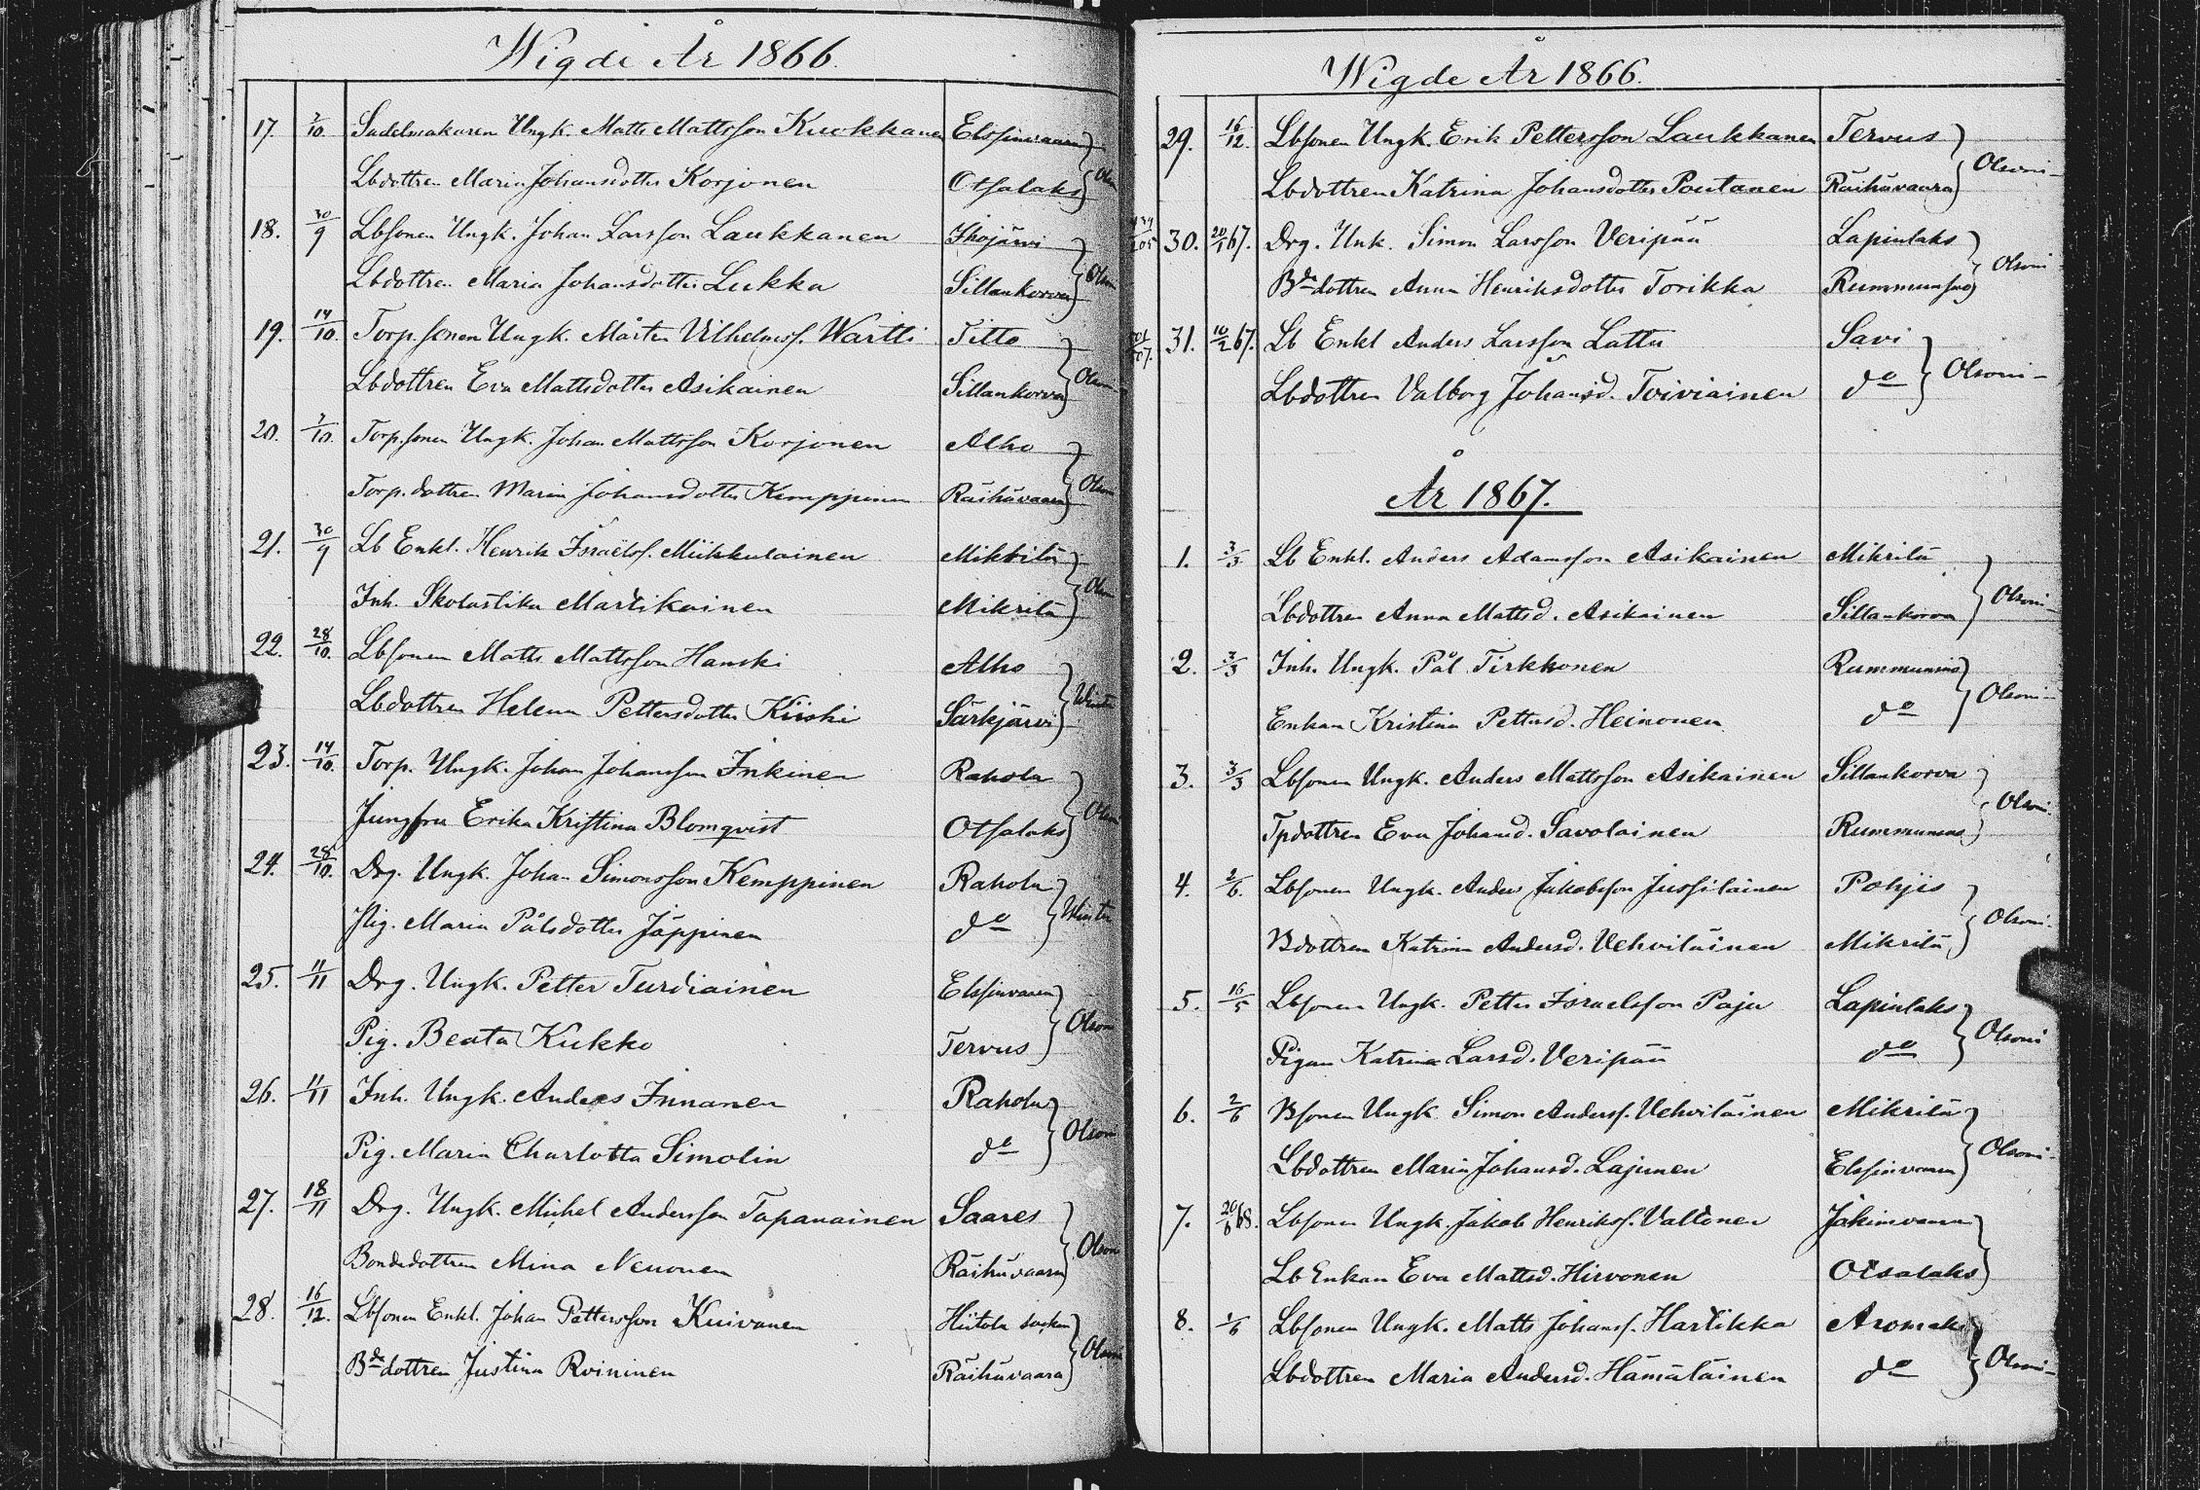 Wigde År 1866.
17. 7/10 Sadelmakaren Ungk. Matts Mattsson Kuokkanen Elssinvaara
Lbdottren Maria Johansdotter Korjonen Otsalaks
18. 30/9 Lbsonen Ungk. Johan Larsson Laukkanen Ihojärvi
Lbdottren Maria Johansdotter Lukka Sillankorva Olsoni
19. 14/10. Torp.sonen Ungk. Mårten Vilhelmss. Wartti Titto
Lbdottren Eva Mattsdotter Asikainen Sillankorva
20. 7/10. Torp.sonen Ungk. Johan Mattsson Korjonen Alho
Torp.dottren Maria Johansdotter Kemppinen Räihävaara
21. 30/9 Lb Enkl. Henrik Israëlss. Miikkulainen Mikrilä
Inh. Skolastika Martikainen Mikrilä
22. 28/10. Lbsonen Matts Mattsson Hanski Alho
Lbdottren Helena Pettersdotter Kiiski Särkjärvi
23. 14/10. Torp. Ungk. Johan Johansson Inkinen Rahola
Jungfru Erika Kristina Blomqvist Otsalaks
24. 28/10. Drg. Ungk. Johan Simonsson Kemppinen Rahola
Pig. Maria Pålsdotter Jäppinen do
25. 11/11 Drg. Ungk. Petter Turdiainen Elssinvaara
Pig. Beata Kukko Tervus Olsoni
26. 11/11 Inh. Ungk. Anders Innanen Rahola
Pig. Maria Charlotta Simolin do Olsoni
27. 18/11 Drg. Ungk. Michel Andersson Tapanainen Saares
Bondedottren Mina Neuonen Räihävaara Olsoni
28. 16/12. Lbsonen Enkl. Johan Pettersson Kuivanen Hiitola socken
Bdedottren Justina Roininen Räihävaara Olsoni
Wigde År 1866.
29. 16/12. Lbsonen Ungk. Erik Pettersson Laukkanen Tervus
Lbdottren Katrina Johansdotter Poutanen Räihävaara Olsoni
30. 20/1 67. Drg. Unk. Simon Larsson Veripää Lapinlaks
Bdedottren Anna Henriksdotter Torikka Rummunsuo Olsoni
31. 10/2 67. Lb Enkl Anders Larsson Lattu Savi
Lbdottren Valborg Johansd. Toiviainen do Olsoni
År 1867.
1. 3/3 Lb Enkl. Anders Adamsson Asikainen Mikrilä
Lbdottren Anna Mattsd. Asikainen Sillankorva Olsoni
2. 3/3 Inh. Ungk. Pål Tirkkonen Rummunsuo
Enkan Kristina Pettersd. Heinonen do Olsoni
3. 3/3 Lbsonen Ungk. Anders Mattsson Asikainen Sillankorva
Tpdottren Eva Johansd. Savolainen Rummunsuo Olsoni
4. 2/6. Lbsonen Ungk. Anders Jakobsson Jussilainen Pohjis
Bdottren Katrina Andersd. Vehviläinen Mikrilä Olsoni
5. 16/5 Lbsonen Ungk. Petter Israelsson Paju Lapinlaks
Pigan Katrina Larsd. Veripää do Olsoni
6. 2/6 Bsonen Ungk Simon Anderss. Vehviläinen Mikrilä
Lbdottren Maria Johansd. Lajunen Elssinvaara Olsoni
7. 20/6 68. Lbsonen Ungk. Jakob Henrikss. Valtonen Jäkimvaara
Lb Enkan Eva Mattsd. Hirvonen Otsalaks
8. 1/6 Lbsonen Ungk. Matts Johanss. Hartikka Aromäki
Lbdottren Maria Andersd. Hämäläinen do Olsoni